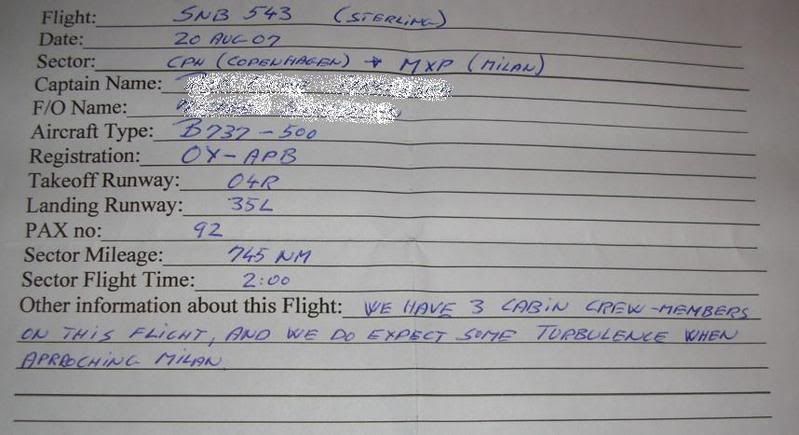 Flight: SNB 543 (STERLING)
Date: 20 AUG 07
Sector: CPN (COPENHAGEN) → MXP (MILAN)
Captain Name:
F/O Name:
Aircraft Type: B737-500
Registration: OY-APB
Takeoff Runway: 04R
Landing Runway: 35L
PAX no: 92
Sector Mileage: 745 NM
Sector Flight Time: 2:00
Other information about this Flight: WE HAVE 3 CABIN CREW-MEMBERS
ON THIS FLIGHT, AND WE DO EXPECT SOME TURBULENCE WHEN
APROCHING MILAN